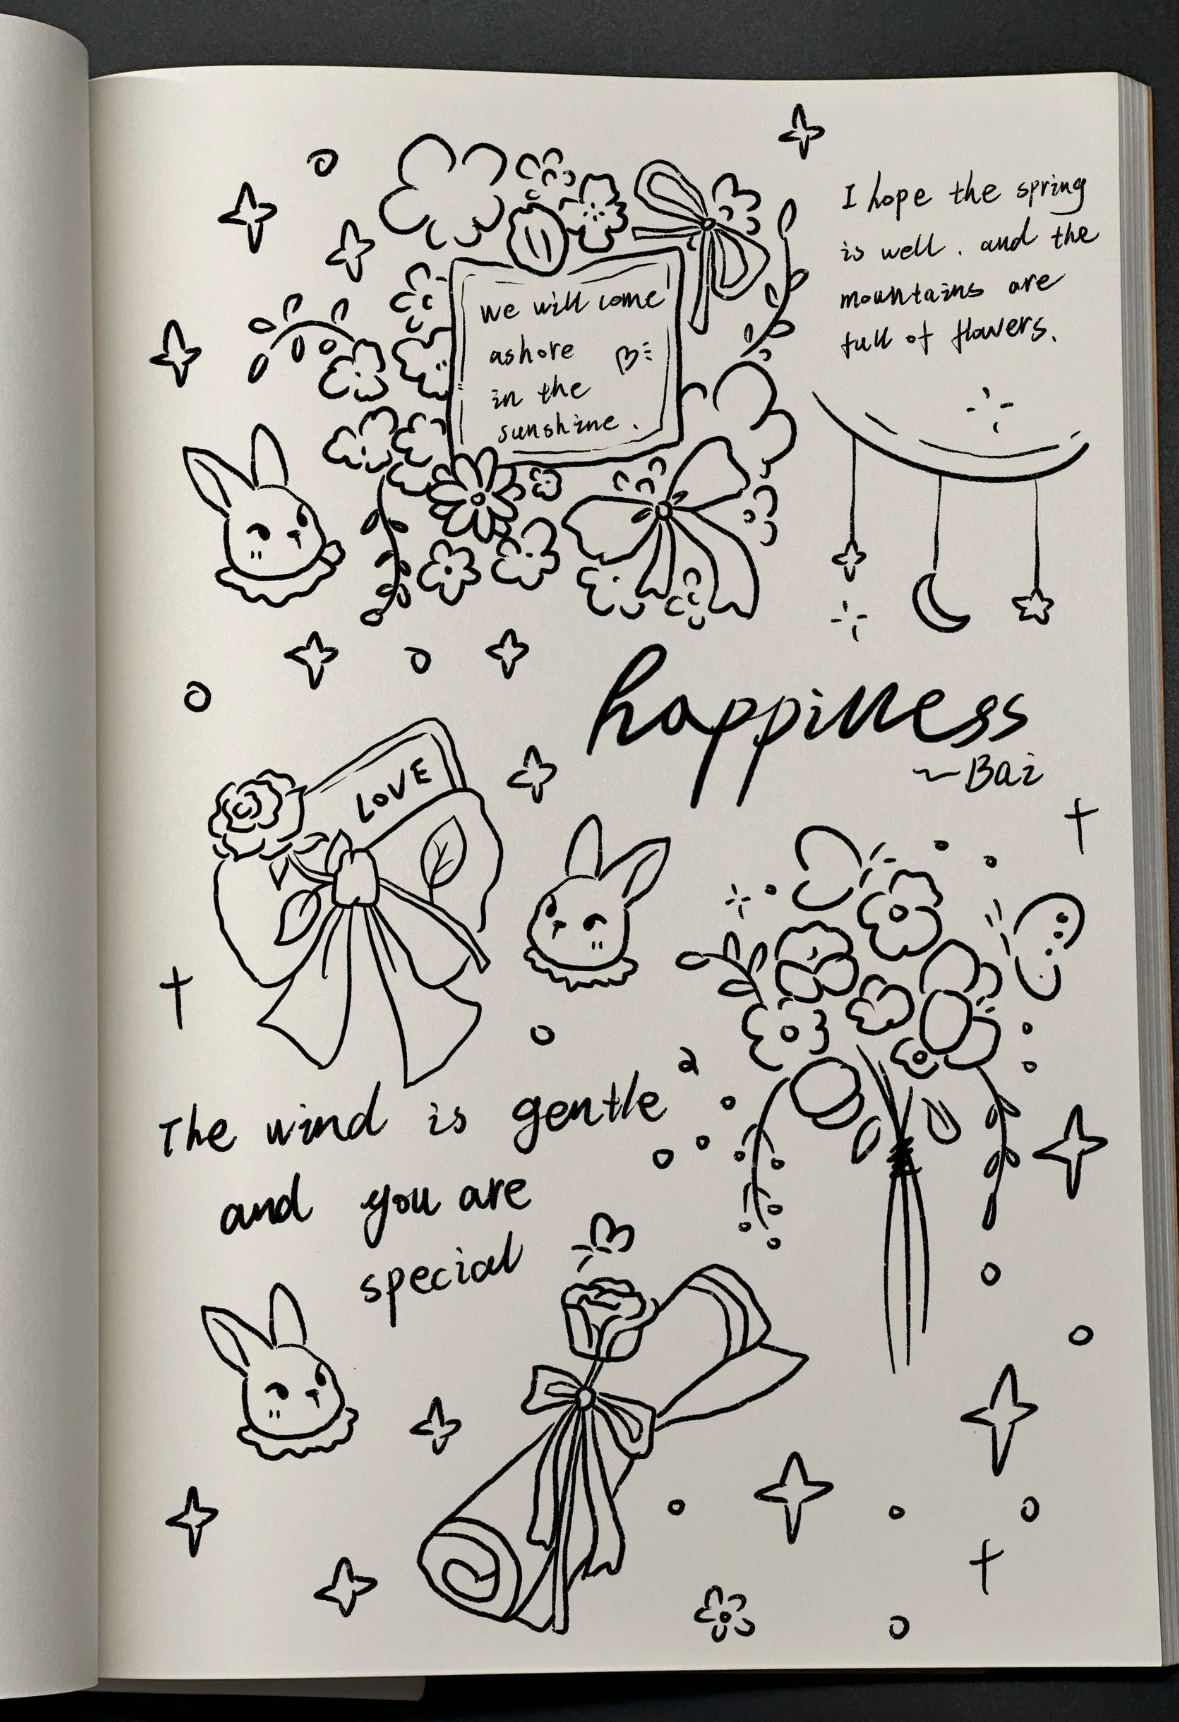 I hope the spring
is well. and the
mountains are
full of flowers.
we will come
ashore
in the
sunshine.
happiness
~Bai
LOVE
The wind is gentle
and you are
special